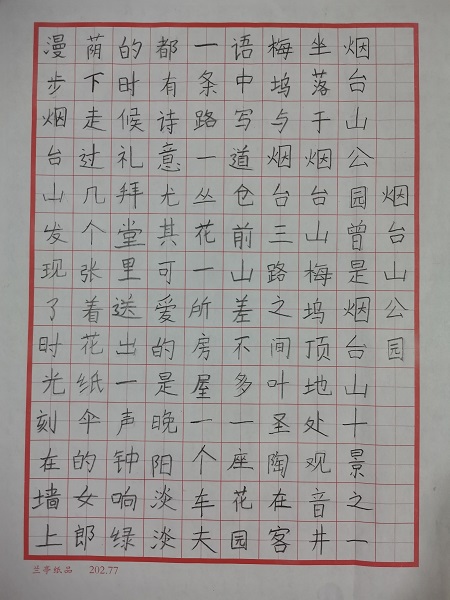 烟台山公园
烟台山公园曾是烟台山十景之一
坐落于烟台山梅坞顶地处观音井
梅坞与烟台三路之间叶圣陶在客
语中写道仓前山差不多一座花园
一条路一丛花一所房屋一个车夫
都有诗意尤其可爱的是晚阳淡淡
的时候礼拜堂里送出一声钟响绿
荫下走过几个张着花纸伞的女郎
漫步烟台山发现了时光刻在墙上
兰亭纸品 202.77